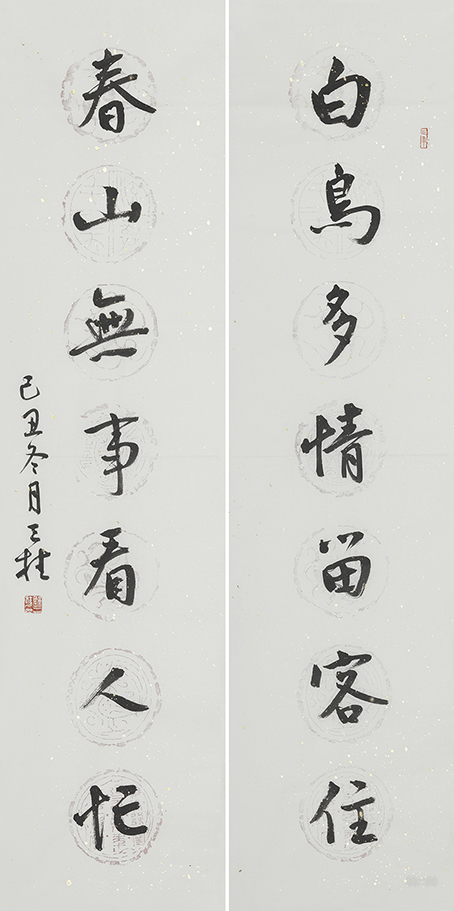 白鳥多情留客住
春山無事看人忙
己丑冬月